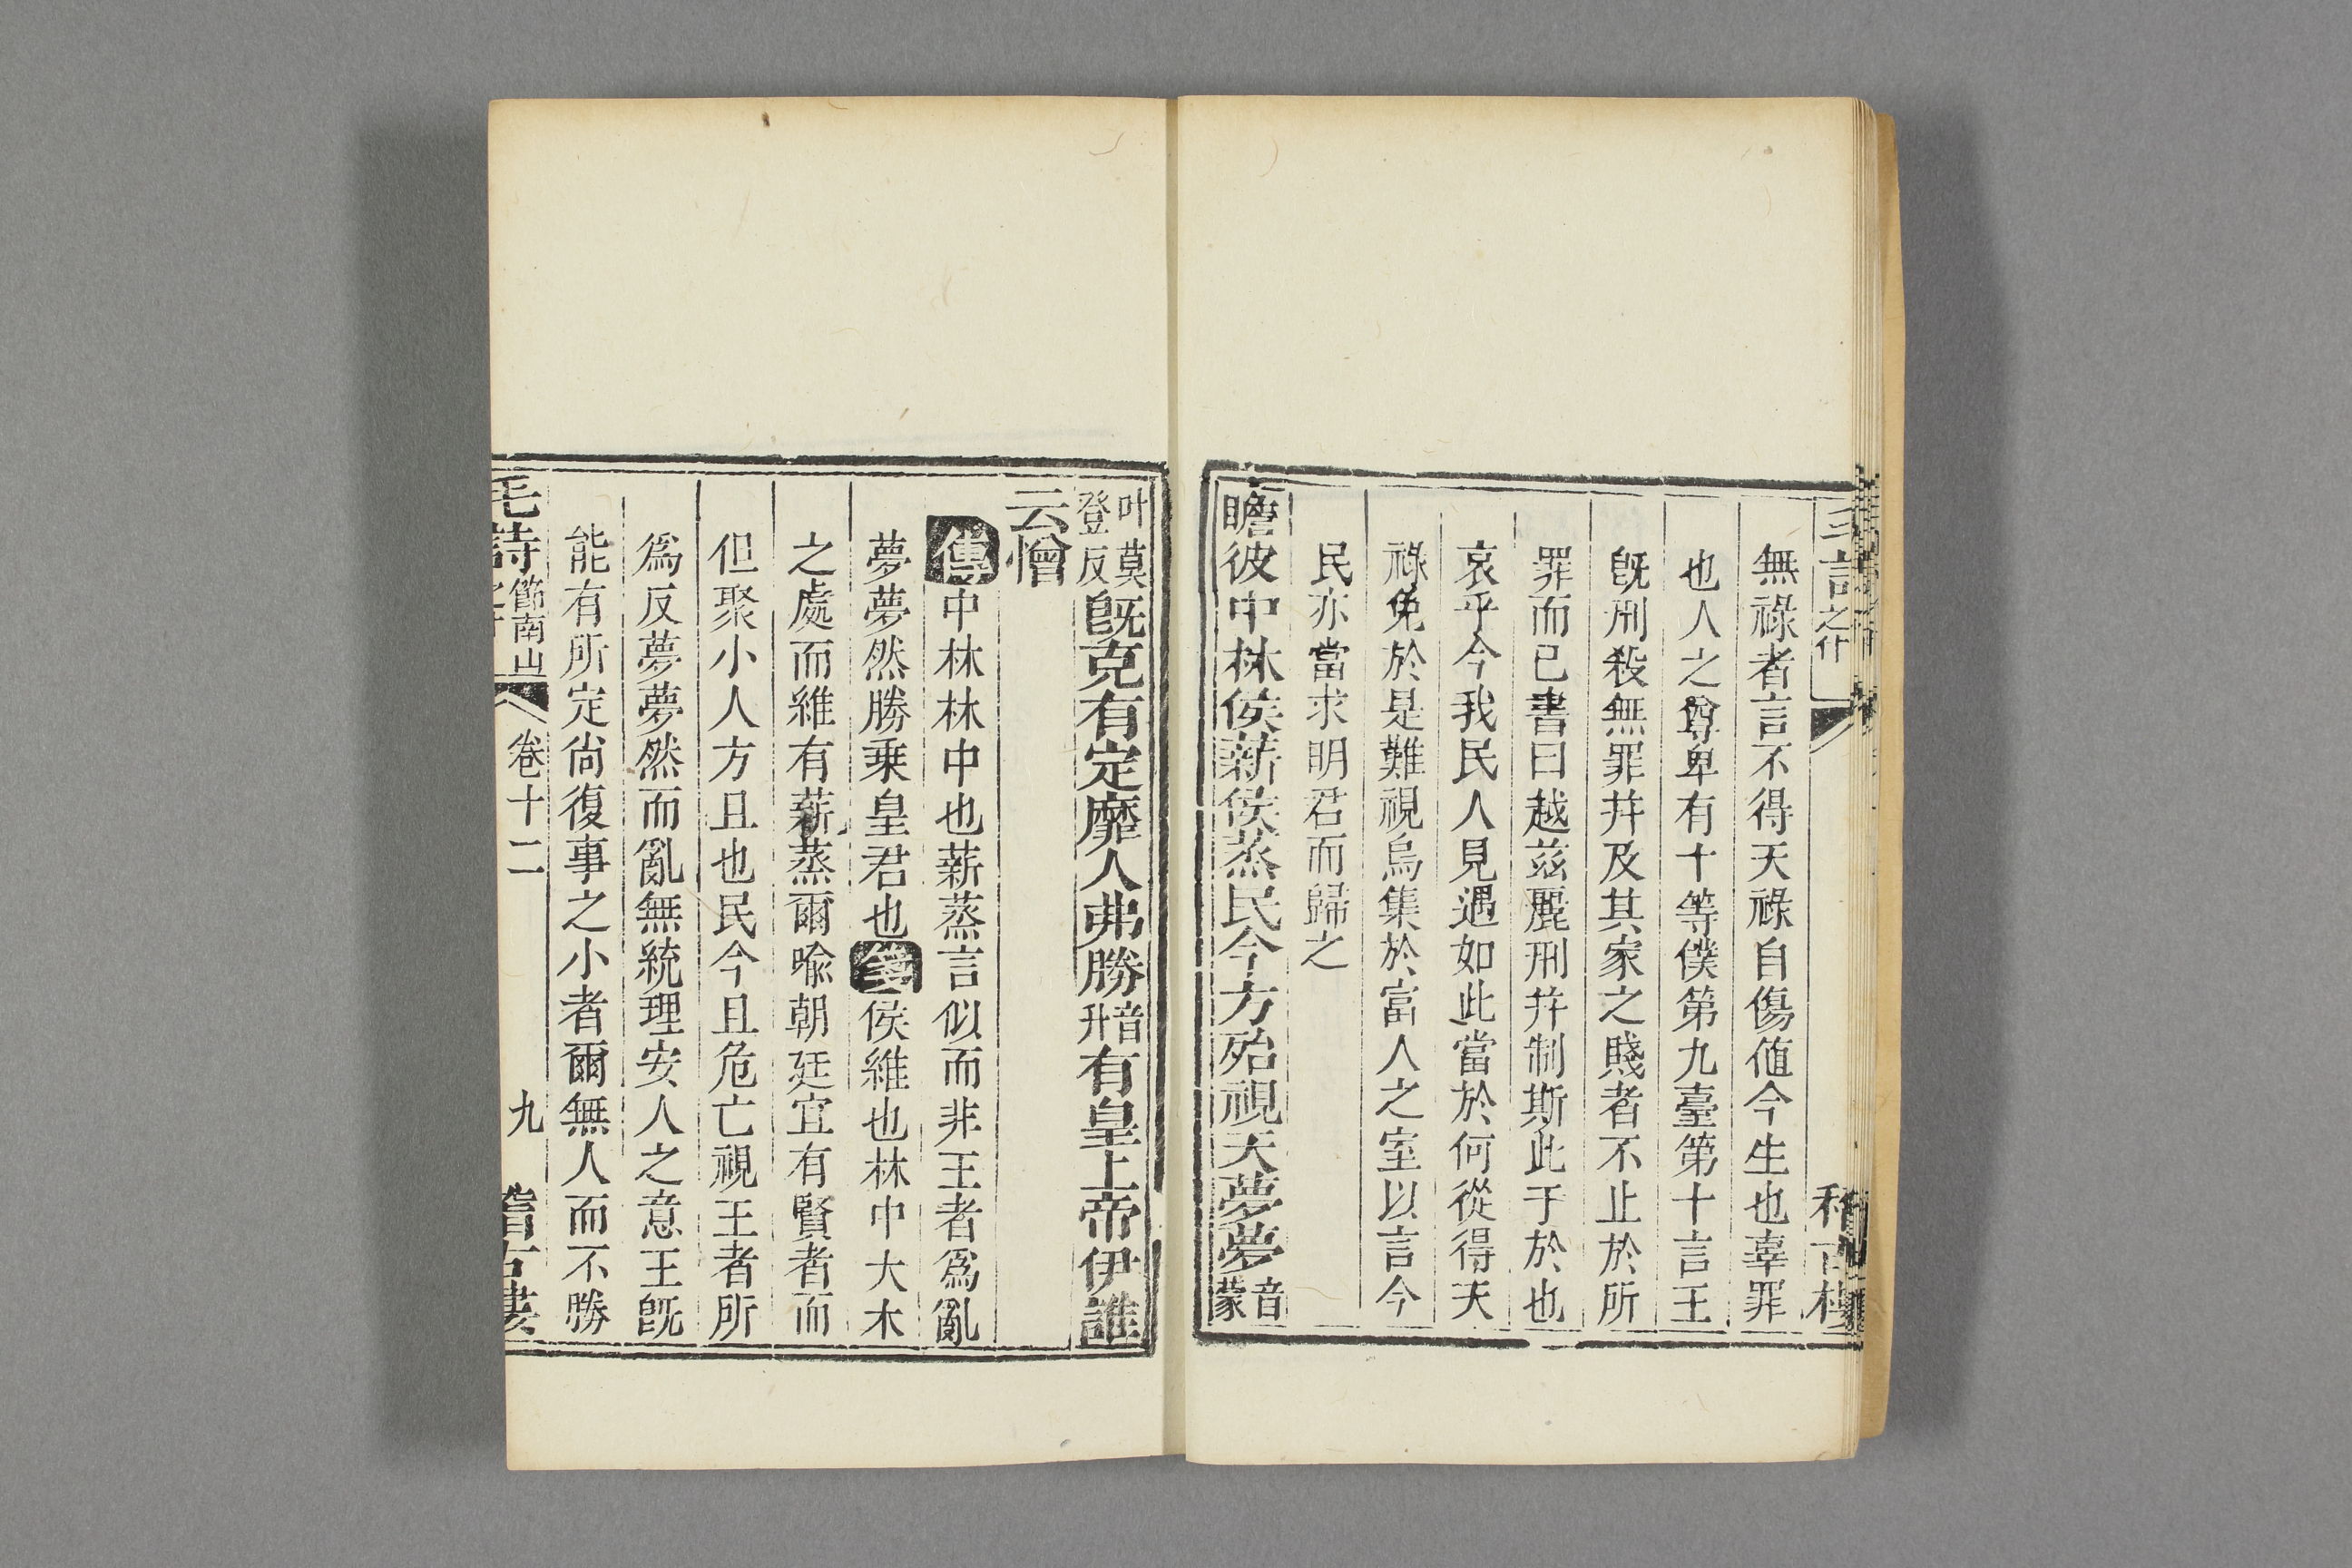 無祿者言不得天祿自傷值今生也辜罪
也人之尊卑有十等僕第九臺第十言王
旣刑殺無罪幷及其家之賤者不止於所
罪而已書曰越茲麗刑幷制斯此于於也
哀乎今我民人見遇如此當於何從得天
祿免於是難視烏集於富人之室以言今
民亦當求明君而歸之
瞻彼中林侯薪侯蒸民今方殆視天夢夢音蒙
叶莫登反旣克有定靡人弗勝音升有皇上帝伊誰
云憎
傳中林林中也薪蒸言似而非王者爲亂
夢夢然勝乗皇君也箋侯維也林中大木
之處而維有薪蒸爾喩朝廷宜有賢者而
但聚小人方且也民今且危亡視王者所
爲反夢夢然而亂無統理安人之意王旣
能有所定尙復事之小者爾無人而不勝
毛詩 節南山 卷十二 九